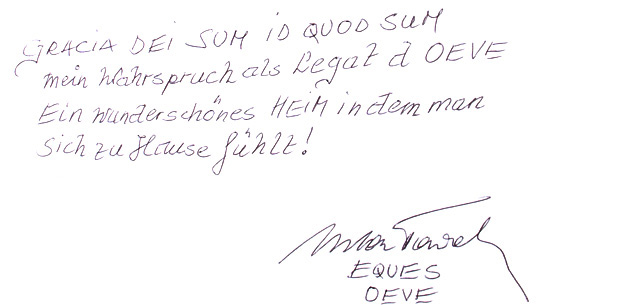 GRACIA DEI SUM ID QUOD SUM
mein Wahrspruch als Legat d OEVE
Ein wunderschönes HEIM in dem man
sich zu Hause fühlt!
EQUES
OEVE